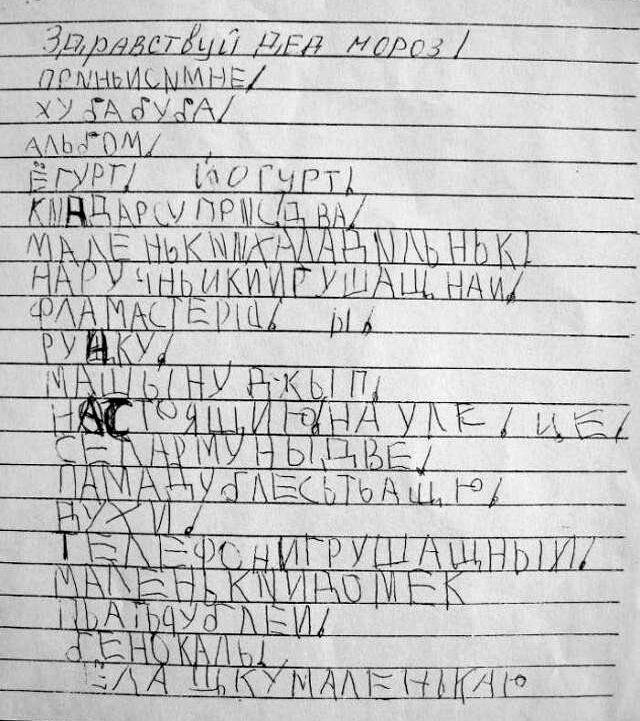 Здравствуй ДЕД мороз!
ПРИНЬИСИМНЕ!
ХУБАБУБА!
АЛЬБОМ!
ЁГУРТ! ЙОГУРТ!
КИНДАРСУПРИСДВА!
МАЛЕНЬКИИХАЛАДИЛЬНЬК!
НАРУЧНЬИКИЙИГРУШАЩНАИ!
ФЛАМАСТЕРЫ! Ы!
РУЧКУ!
МАШЫНУ ДЖЫП!
НАСТОЯЩИЮ!НА УЛЕ! ЦЕ!
СЕЛАРМУНЫ,ДВЕ!
ПАМАДУБЛЕСЬТЬАЩЮ!
ДУХИ!
ТЕЛЕФОНИГРУШАЩНЫЙ!
МАЛЕНЬКИЙДОМЕК
ПЬАТЬРУБЛЕЙ!
БЕНОКАЛЬ!
ЁЛАЩЬКУМАЛЕНЬКАЮ